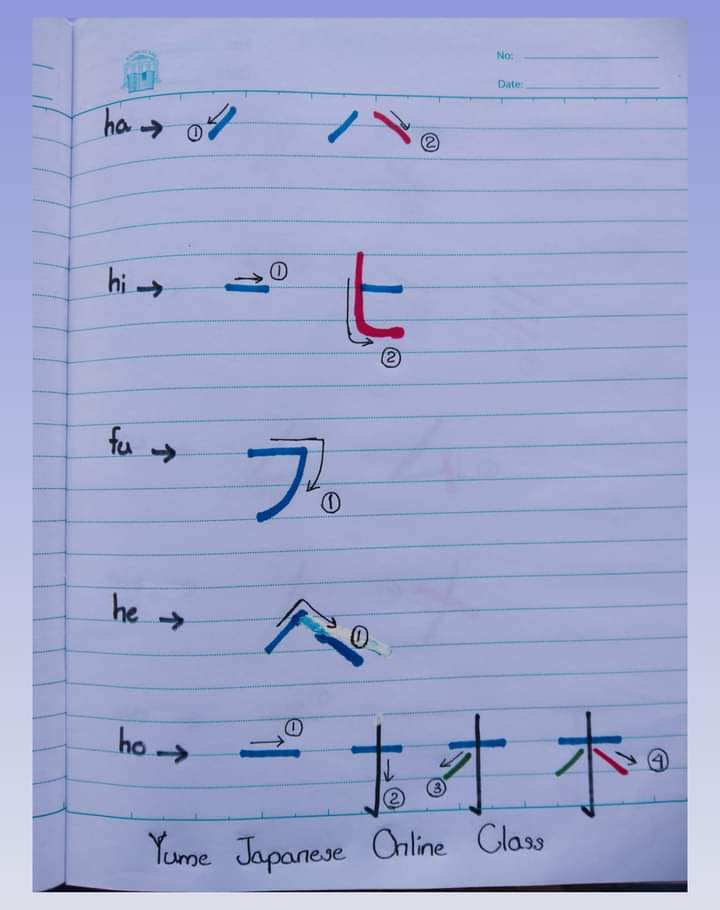 No:
Date:
ha → ① ハ ②
hi → ① ヒ ②
fu → フ ①
he → ヘ ①
ho → ① ② ③ ホ ④
Yume Japanese Online Class